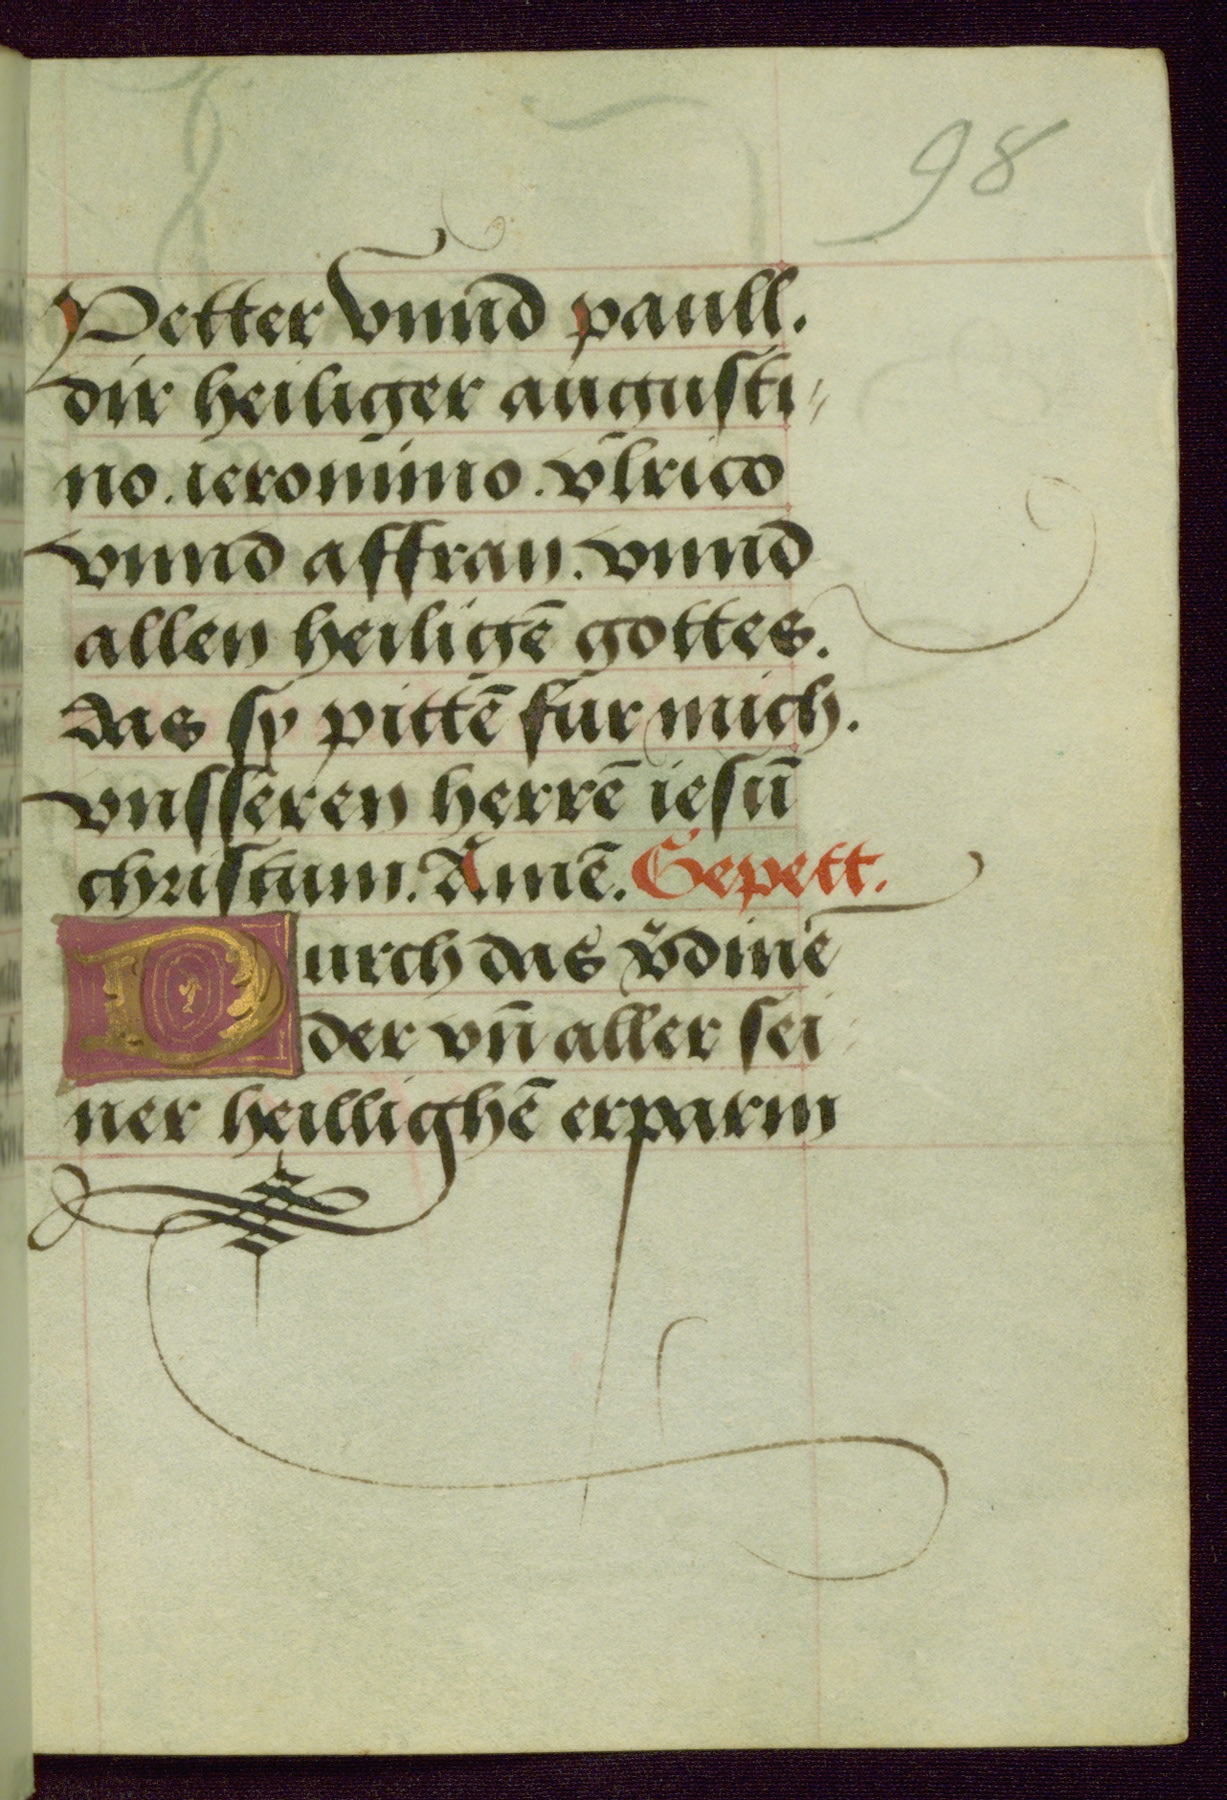 98
Petter vnnd paull.
dir heiliger augusti-
no. ieronimo. vlrico
vnnd affran. vnnd
allen heiligē gottes.
das sy pittē fur mich.
vnsseren herrē iesū
christum. Amē. Gepett.
Durch das v̄dine
der vn̄ aller sei
ner heillighē erparm